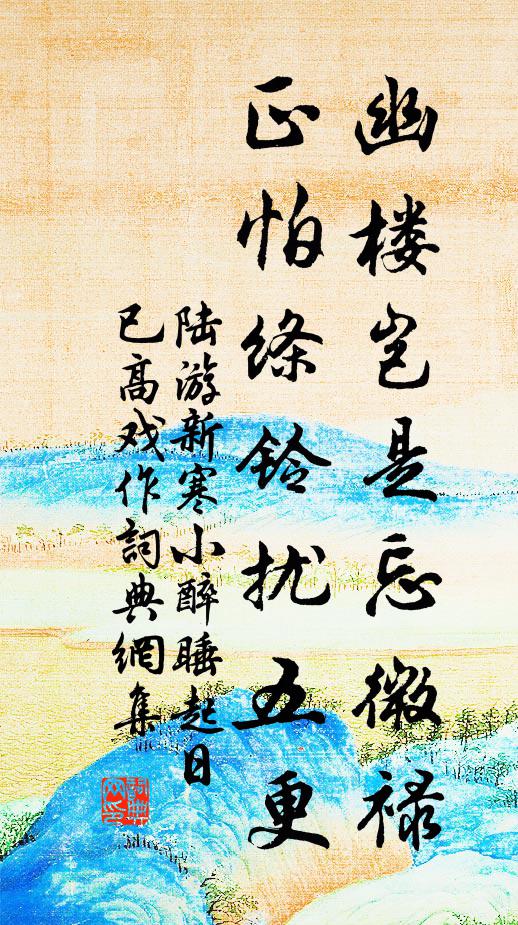 幽楼岂是忘微禄
正怕绦铃扰五更
陆游新寒小醉睡起日
已高戏作詞典網集